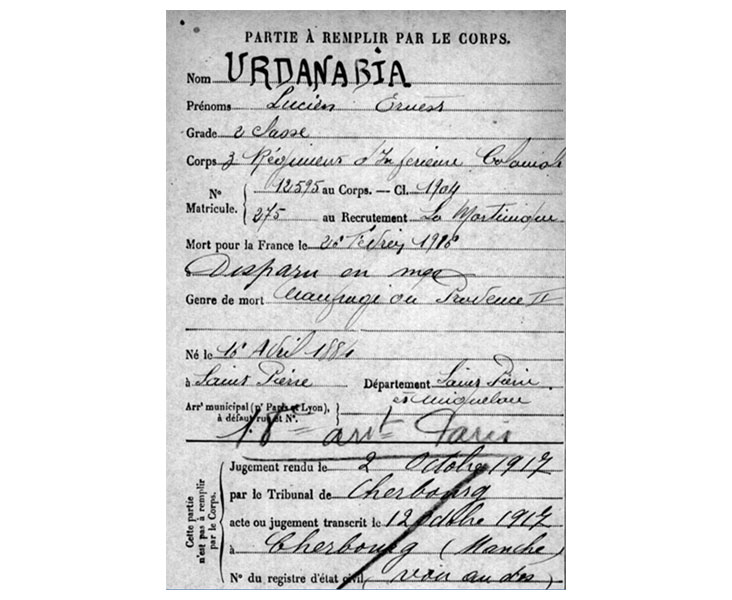 PARTIE À REMPLIR PAR LE CORPS.
Nom URDANABIA
Prénoms Lucien Ernest
Grade 2 Classe
Corps 3 Régiment d'Infanterie Coloniale
N° Matricule. 12595 au Corps. — Cl. 1904
275 au Recrutement La Martinique
Mort pour la France le Février 1916
à Disparu en mer
Genre de mort Naufrage du Provence II
Né le Avril 1884
à Saint Pierre Département Saint Pierre
et Miquelon
Arrt municipal (pr Paris et Lyon),
à défaut rue et N°.
18me arrt Paris
Cette partie n'est pas à remplir par le Corps.
Jugement rendu le 2 Octobre 1917
par le Tribunal de Cherbourg
acte ou jugement transcrit le 12 octobre 1917
à Cherbourg (Manche)
N° du registre d'état civil (voir au dos)